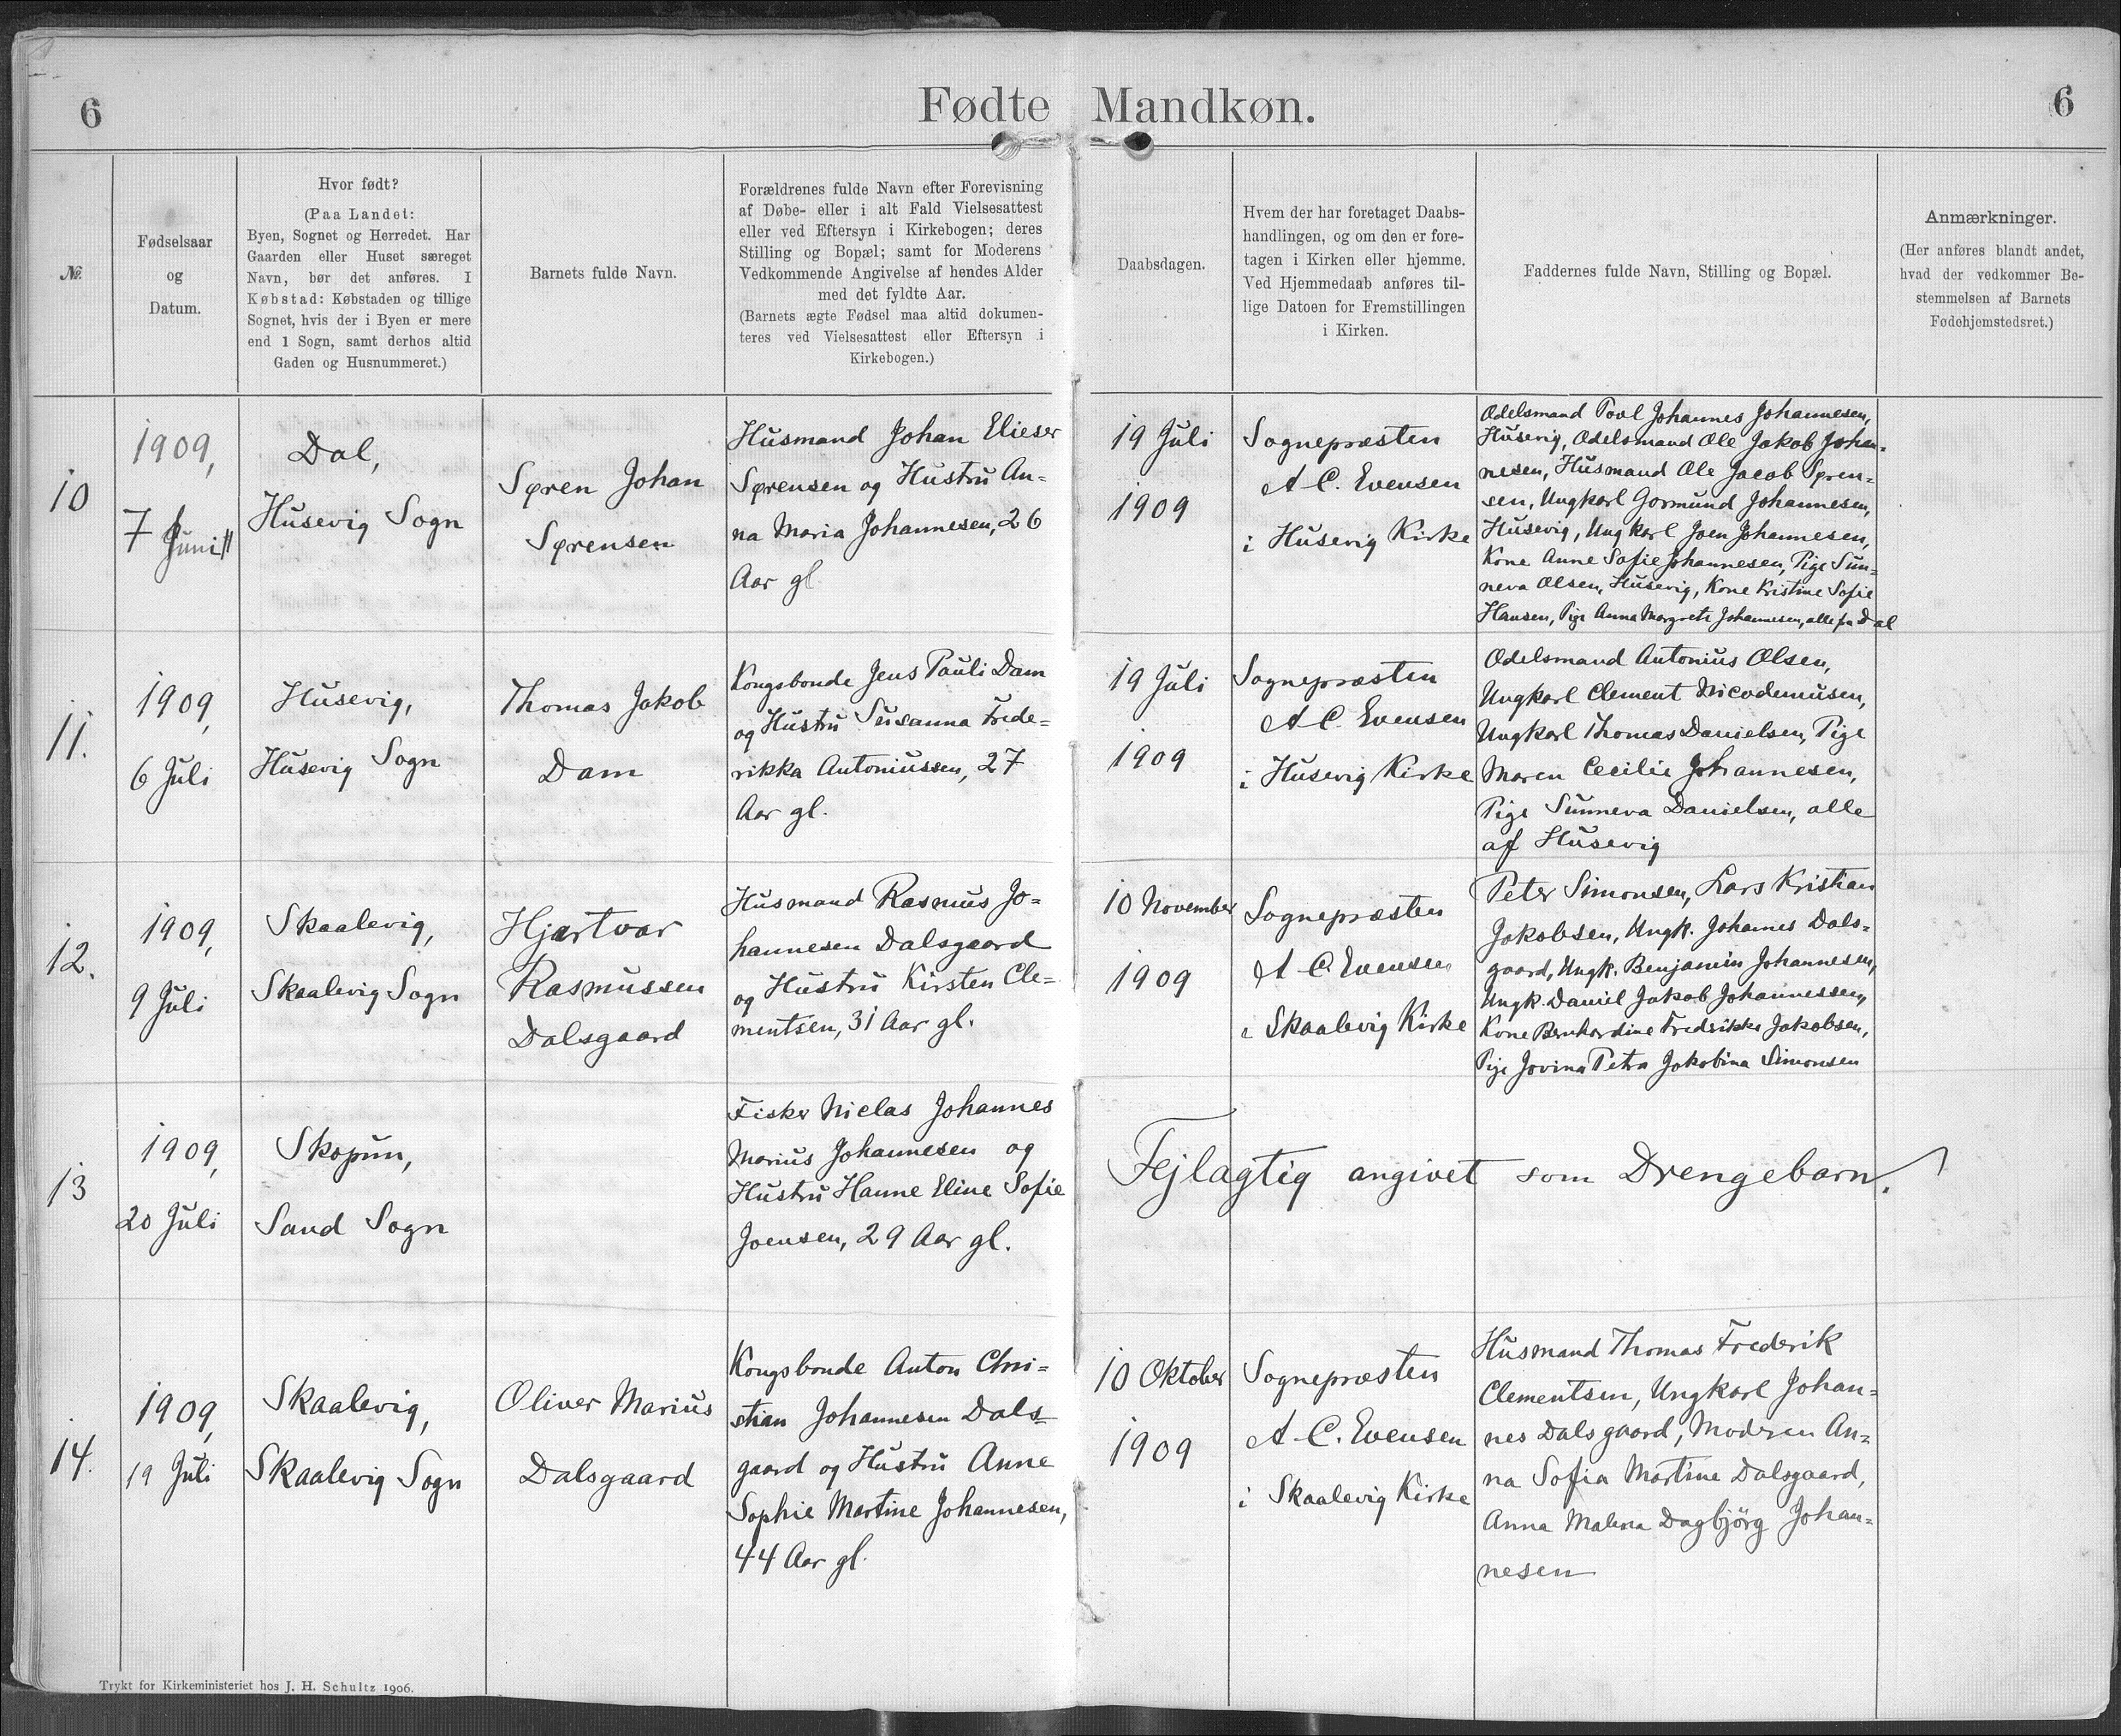 6
Fødte Mandkøn.
6
№
Fødselsaar
og
Datum.
Hvor født?
(Paa Landet:
Byen, Sognet og Herredet. Har
Gaarden eller Huset særeget
Navn, bør det anføres. I
Købstad: Købstaden og tillige
Sognet, hvis der i Byen er mere
end 1 Sogn, samt derhos altid
Gaden og Husnummeret.)
Barnets fulde Navn.
Forældrenes fulde Navn efter Forevisning
af Døbe- eller i alt Fald Vielsesattest
eller ved Eftersyn i Kirkebogen; deres
Stilling og Bopæl; samt for Moderens
Vedkommende Angivelse af hendes Alder
med det fyldte Aar.
(Barnets ægte Fødsel maa altid dokumen-
teres ved Vielsesattest eller Eftersyn i
Kirkebogen.)
Daabsdagen.
Hvem der har foretaget Daabs-
handlingen, og om den er fore-
tagen i Kirken eller hjemme.
Ved Hjemmedaab anføres til-
lige Datoen for Fremstillingen
i Kirken.
Faddernes fulde Navn, Stilling og Bopæl.
Anmærkninger.
(Her anføres blandt andet,
hvad der vedkommer Be-
stemmelsen af Barnets
Fødehjemstedsret.)
10
1909,
7 Juni
Dal,
Husevig Sogn
Søren Johan
Sørensen
Husmand Johan Elieser
Sørensen og Hustru An=
na Maria Johannesen, 26
Aar gl
19 Juli
1909
Sognepræsten
A C. Evensen
i Husevig Kirke
Odelsmand Poul Johannes Johannesen,
Husevig, Odelsmand Ole Jakob Johan=
nesen, Husmand Ole Jacob Søren=
sen, Ungkarl Gormund Johannesen,
Husevig, Ungkarl Joen Johannesen,
Kone Anne Sofie Johannesen, Pige Sun=
neva Olsen, Husevig, Kone Kristine Sofie
Hansen, Pige Anna Margrete Johannesen, alle fra Dal
11.
1909,
6 Juli
Husevig,
Husevig Sogn
Thomas Jakob
Dam
Kongsbonde Jens Pauli Dam
og Hustru Susanna Frede=
rikka Antoniussen, 27
Aar gl.
19 Juli
1909
Sognepræsten
A C. Evensen
i Husevig Kirke
Odelsmand Antonius Olsen,
Ungkarl Clement Nicodemusen,
Ungkarl Thomas Danielsen, Pige
Maren Cecilie Johannesen,
Pige Sunneva Danielsen, alle
af Husevig
12.
1909,
9 Juli
Skaalevig,
Skaalevig Sogn
Hjartvar
Rasmussen
Dalsgaard
Husmand Rasmus Jo=
hannesen Dalsgaard
og Hustru Kirsten Cle=
mentsen, 31 Aar gl.
10 November
1909
Sognepræsten
A C. Evensen
i Skaalevig Kirke
Peter Simonsen, Lars Kristian
Jakobsen, Ungk. Johannes Dals=
gaard, Ungk. Benjamin Johannesen,
Ungk. Daniel Jakob Johannessen,
Kone Bernhardine Fredrikke Jakobsen,
Pige Jovina Petra Jakobina Simonsen
13
1909,
20 Juli
Skopun,
Sand Sogn
Fisker Niclas Johannes
Marius Johannesen og
Hustru Hanne Eline Sofie
Joensen, 29 Aar gl.
Fejlagtig angivet som Drengebarn.
14.
1909,
19 Juli
Skaalevig,
Skaalevig Sogn
Oliver Marius
Dalsgaard
Kongsbonde Anton Chri=
stian Johannesen Dals=
gaard og Hustru Anne
Sophie Martine Johannesen,
44 Aar gl.
10 Oktober
1909
Sognepræsten
A. C. Evensen
i Skaalevig Kirke
Husmand Thomas Frederik
Clementsen, Ungkarl Johan=
nes Dalsgaard, Moderen An=
na Sofia Martine Dalsgaard,
Anna Malena Dagbjörg Johan=
nesen
Trykt for Kirkeministeriet hos J. H. Schultz 1906.